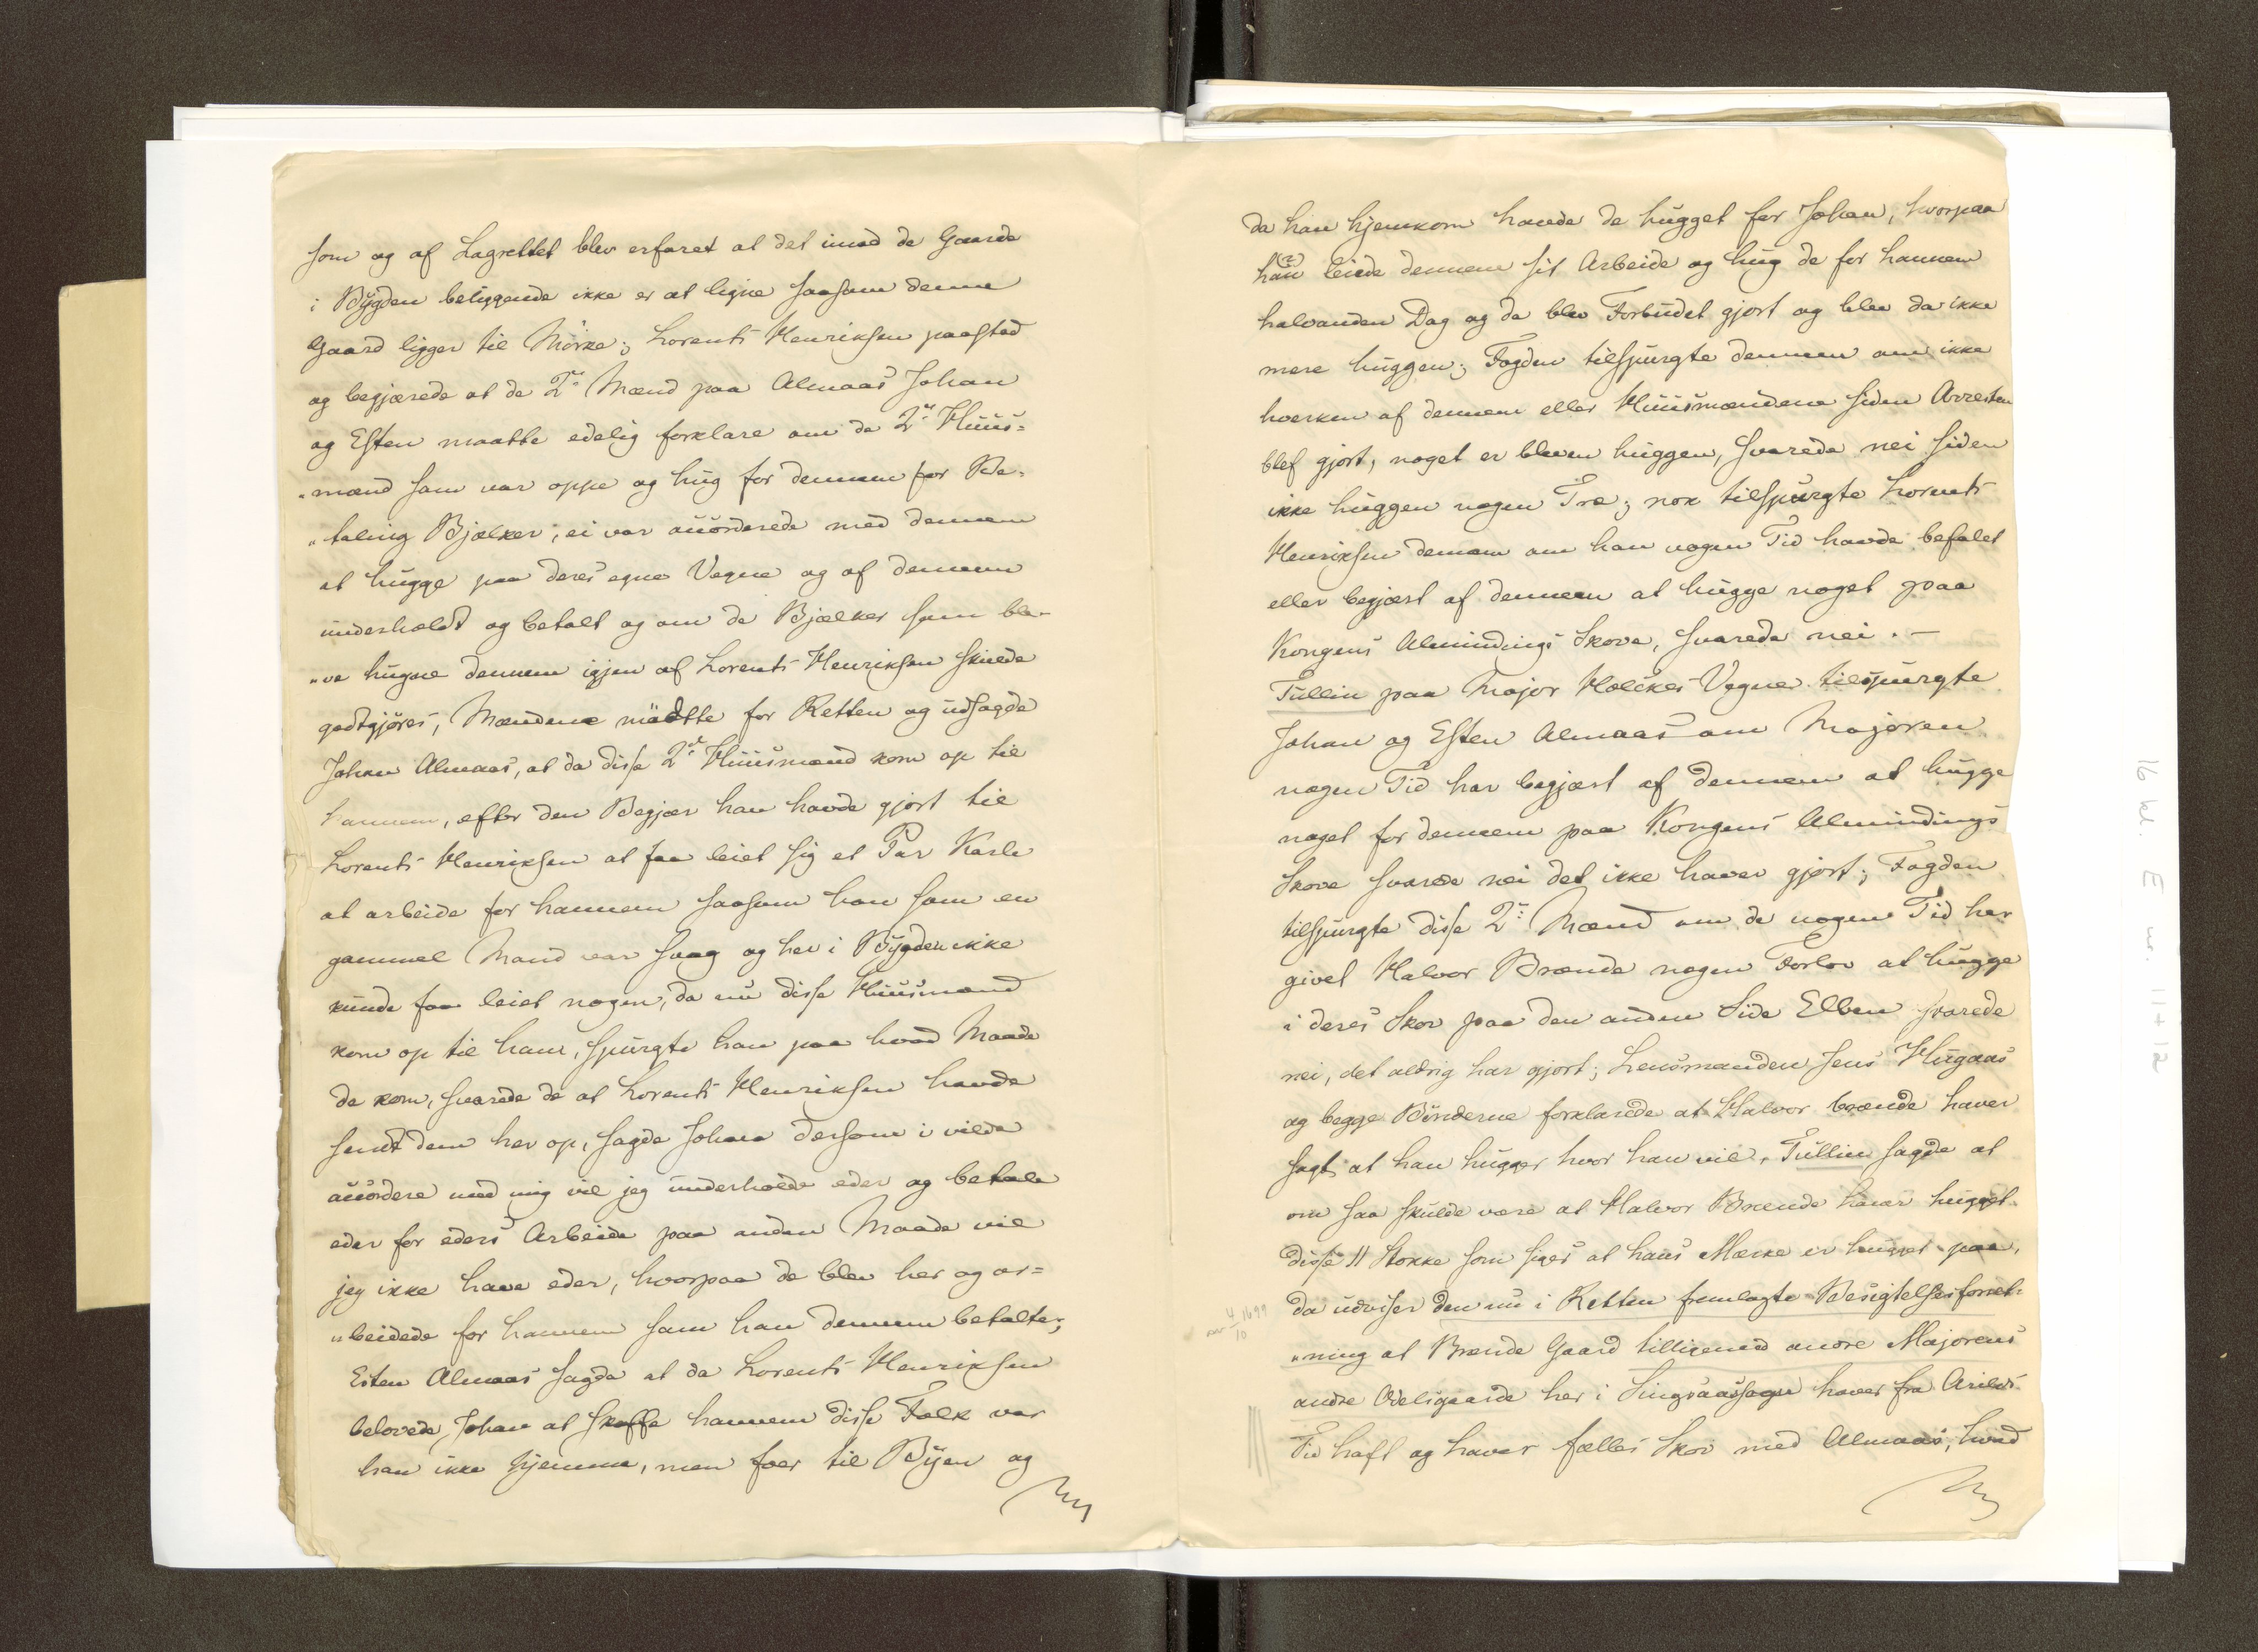 som og af Lagrettet blev erfaret at det imod de Gaarde
i Bÿgden beliggende ikke er at ligne saasom denne
Gaard ligger til Mörke; Lorents Henriksen paastod
og begjærede at de 2de Mænd paa Almaas Johan
og Esten maatte edelig forklare om de 2de Huus=
„mænd som var oppe og hug for dennem for Be-
„taling Bjælker; ei var accorderede med dennem
at hugge paa deres egne Vegne og af dennem
underholdt og betalt og om de Bjælker som ble-
„ve hugne dennem igjen af Lorents Henriksen skulde
godtgjöres, Mændene mödtte for Retten og udsagde
Johan Almaas, at da disse 2de Huusmænd kom op til
hannem, efter den Begjær han havde gjort til
Lorents Henriksen at faa leiet sig et Par Karle
at arbeide for hannem saasom han som en
gammel Mand var svag og her i Bÿgden ikke
kunde faa leiet nogen, da nu disse Huusmænd
kom op til ham, spurgte han paa hvad Maade
de kom, svarede de at Lorents Henriksen havde
sendt dem her op, sagde Johan dersom i vilde
accordere med mig vil jeg underholde eder og betale
eder for eders Arbeide paa anden Maade vil
jeg ikke have eder, hvorpaa de blev her og ar=
„beidede for hannem som han dennem betalte;
Esten Almaas sagde at da Lorents Henriksen
belovede, Johan at skaffe hannem disse Folk var
han ikke hjemme, men foer til Bÿen og
da han hjemkom havde de hugget for Johan, hvorpaa
han leiede dennem sit Arbeide og hug de for hannem
halvanden Dag og da blev Forbudet gjort og blev da ikke
mere huggen; Fogden tilspurgte dennem om ikke
hverken af dennem eller Huusmændene siden Arresten
blef gjort, noget er bleven huggen, svarede nei siden
ikke huggen nogen Træ; nok tilspurgte Lorents
Henriksen dennem om han nogen Tid havde befalet
eller begjært af dennem at hugge noget paa
Kongens Almindings Skove, svarede nei. –
Tullin paa Major Holckes Vegne tilspurgte
Johan og Esten Almaas om Majoren
nogen Tid har begjært af dennem at hugge
noget for dennem paa Kongens Almindings
Skove svarede nei det ikke haver gjort; Fogden
tilspurgte disse 2de Mænd om de nogen Tid har
givet Halvor Brænde nogen Forlov at hugge
i deres Skov paa den anden Side Elben svarede
nei, det aldrig har gjort; Lensmanden Jens Hugaas
og begge Bönderne forklarede at Halvor brænde haver
sagt at han hugger hvor han vil, Tullin sagde at
om saa skulde være at Halvor Brænde haver hugget
disse 11 Stokke som siges at hans Mærke er hugget paa,
da udviser den nu i Retten fremlagte Besigtelsesforret=
4/10 1699
„ning at Brænde Gaard tilligemed andre Majorens
andre Odelsgaarde her i Singsaas sogn haver fra Arilds
Tid haft og haver fælles Skov med Almaas, hvad
16 kl. E nr. 11+12